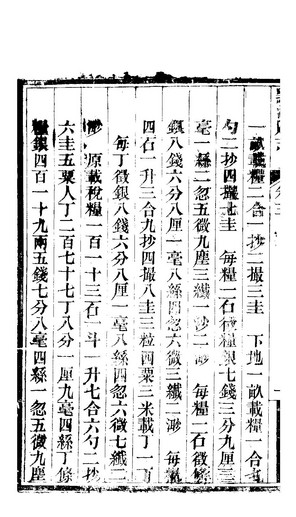 一畝載糧二合一抄二撮三圭　下地一畝載糧一合
勺二抄四撮七圭　每糧一石徵糧銀七錢三分九厘三
毫一絲二忽五微九塵三纖一沙二渺　每糧一石徵條
銀八錢六分八厘一毫八絲四忽六微三纖二渺　每
四石一升三合九抄四撮八圭三粒四粟二米載丁一丁
每丁徵銀八錢六分八厘一毫八絲四忽六微七纖二
渺　原載稅糧一百一十三石一斗一升七合六勺二抄
六圭五粟人丁二百七十七丁八分一厘九毫四絲丁條
糧銀四百一十九兩五錢七分八毫四絲一忽五微九塵